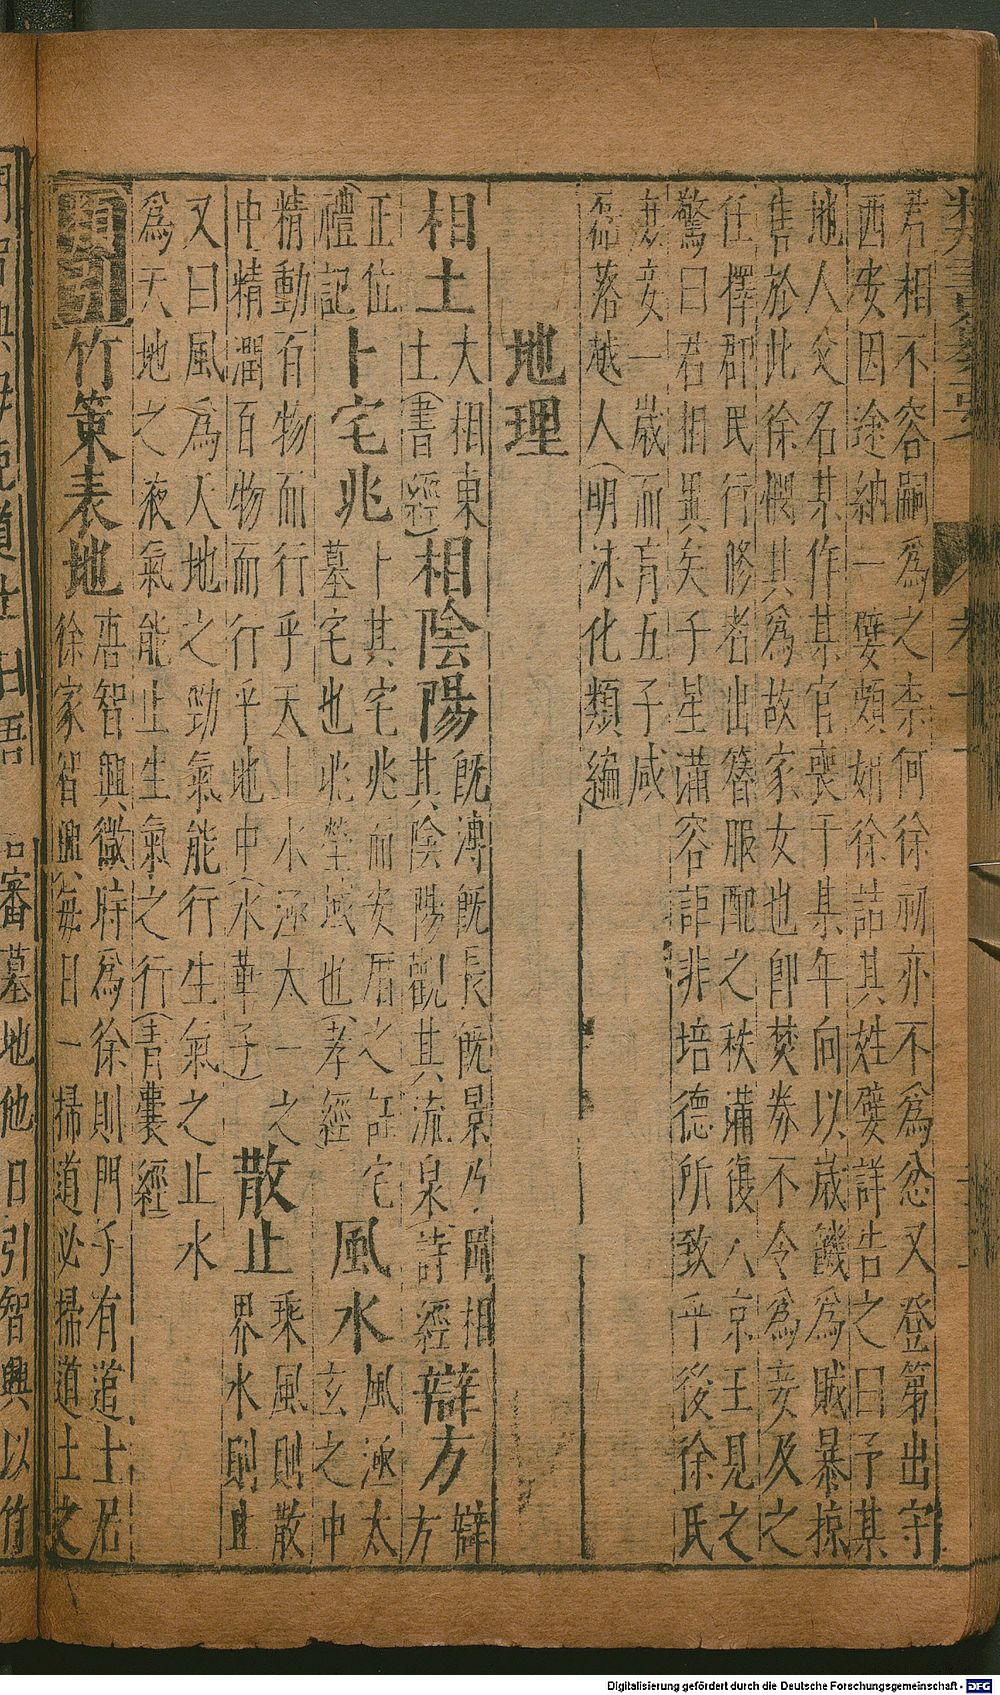 君相不容嗣為之柰何徐初亦不為忿又登第出守
西安因途納一嬖頗娟徐詰其姓嬖詳告之曰予某
地人父名某作某官喪于某年向以歲饑為賊暴掠
售於此徐憫其為故家女也即焚券不令為妾及之
任擇郡民行修者出簪服配之秩滿復入京王見之
驚曰君相異矣子星滿容詎非培德所致乎後徐氏
妻妾一歲而育五子咸
磊落越人(明沫化類編
地理
相土
大相東
土(書經)
相陰陽
既溥既長既景乃岡相
其陰陽觀其流泉(詩經
辯方
辯
方
正位
禮記
卜宅兆
卜其宅兆而安厝之註宅
墓宅也兆塋域也(孝經
風水
風涵太
玄之中
精動百物而行乎天上水涵太一之
中精潤百物而行乎地中(水華子)
散止
乘風則散
界水則止
又曰風為人地之勁氣能行生氣之止水
為天地之液氣能止生氣之行(青囊經)
類引
竹策表地
唐智興微時為徐則門子有道士居
徐家智興每日一掃道必掃道士之
審墓地他日引智興以竹
Digitalisierung gefördert durch die Deutsche Forschungsgemeinschaft - DFG